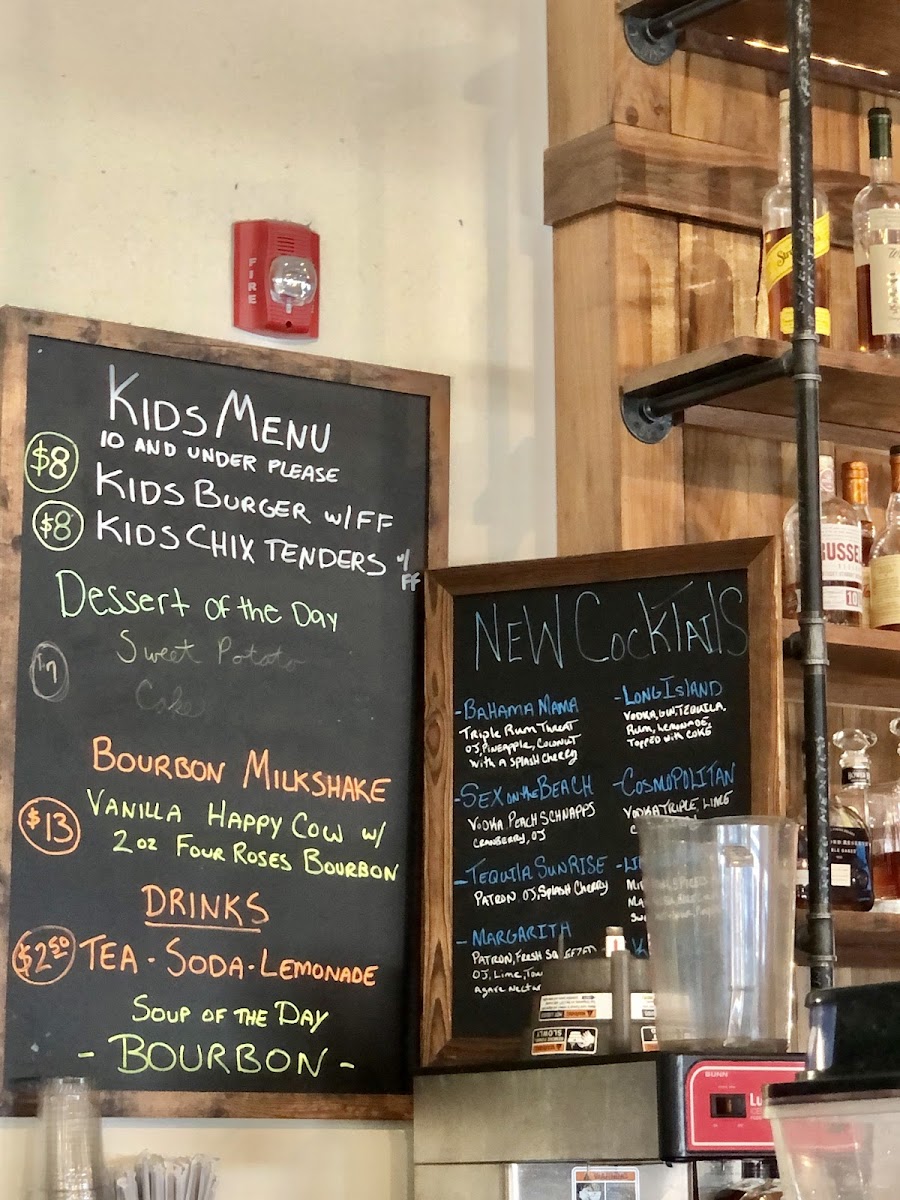 FIRE
KIDS MENU
10 AND UNDER PLEASE
$8 KIDS BURGER W/FF
$8 KIDS CHIX TENDERS W/
FF
Dessert of the Day
Sweet Potato
$7
Cake
BOURBON MILKSHAKE
$13 VANILLA HAPPY COW W/
2oz FOUR ROSES BOURBON
DRINKS
$2.50 TEA - SODA - LEMONADE
SOUP OF THE DAY
- BOURBON -
NEW COCKTAILS
- BAHAMA MAMA
Triple Rum Threat
OJ, Pineapple, Coconut
with a splash Cherry
- SEX ON the BEACH
VODKA, PEACH SCHNAPPS
CRANBERRY, OJ
- TEQUILA SUNRISE
PATRON, OJ, Splash Cherry
- MARGARITH
PATRON, FRESH
OJ, Lime,
agave Nectar
- LONG ISLAND
VODKA, GIN, TEQUILA,
Rum, LEMONADE,
TOPPED with COKE
- COSMOPOLITAN
VODKA, TRIPLE, LIME
RUSSE
10
BUNN
SLOWLY